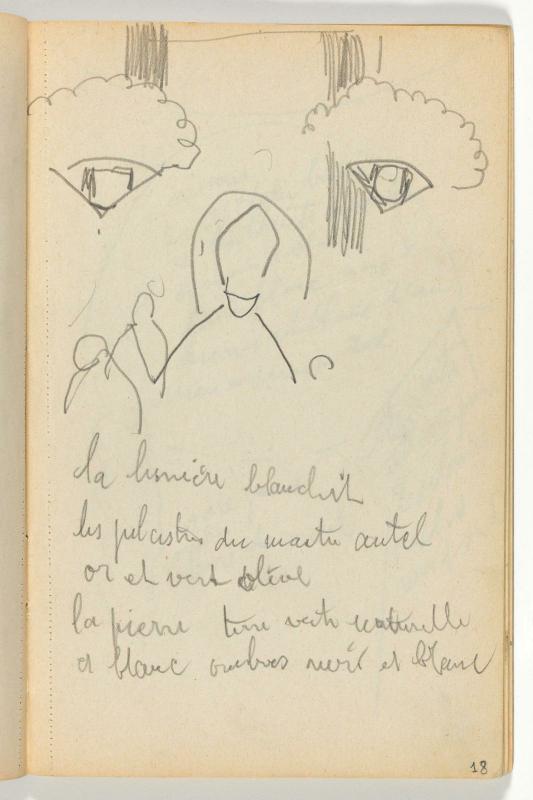 la lumière blanchit
les pilastres du maitre autel
or et vert olive
la pierre terre verte naturelle
et blanc ombres noir et blanc
18